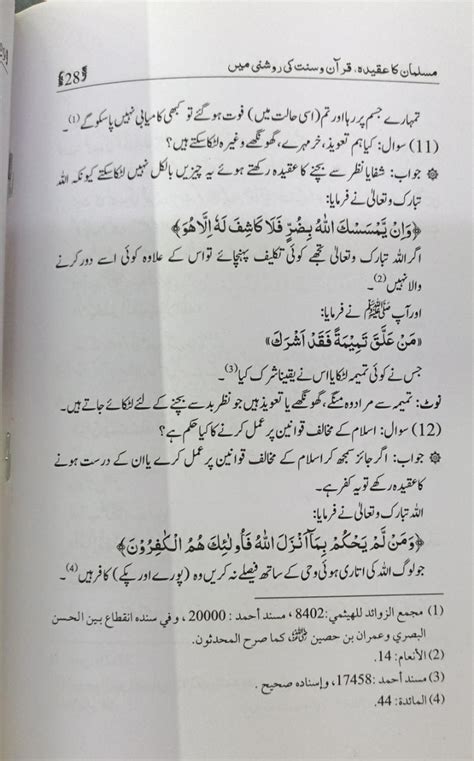 مسلمان کا عقیدہ، قرآن و سنت کی روشنی میں
28
تمہارے جسم پر رہا اور تم (اسی حالت میں) فوت ہو گئے تو کبھی کامیابی نہیں پاسکو گے (1)۔
(11) سوال: کیا ہم تعویذ، خرمہرے، گھونگھے وغیرہ لٹکا سکتے ہیں؟
جواب: شفایا نظر سے بچنے کا عقیدہ رکھتے ہوئے یہ چیزیں بالکل نہیں لٹکا سکتے کیونکہ اللہ
تبارک و تعالیٰ نے فرمایا:
﴿وَاِنْ يَّمْسَسْكَ اللّٰهُ بِضُرٍّ فَلَا كَاشِفَ لَهٗ اِلَّا هُوَ﴾
اگر اللہ تبارک و تعالیٰ تجھے کوئی تکلیف پہنچائے تو اس کے علاوہ کوئی اسے دور کرنے
والا نہیں (2)۔
اور آپ ﷺ نے فرمایا:
«مَنْ عَلَّقَ تَمِيْمَةً فَقَدْ اَشْرَكَ»
جس نے کوئی تمیمہ لٹکایا اس نے یقینا شرک کیا (3)۔
نوٹ: تمیمہ سے مراد وہ منکے، گھونگھے یا تعویذ ہیں جو نظر بد سے بچنے کے لئے لٹکائے جاتے ہیں۔
(12) سوال: اسلام کے مخالف قوانین پر عمل کرنے کا کیا حکم ہے؟
جواب: اگر جائز سمجھ کر اسلام کے مخالف قوانین پر عمل کرے یا ان کے درست ہونے
کا عقیدہ رکھے تو یہ کفر ہے۔
اللہ تبارک و تعالیٰ نے فرمایا:
﴿وَمَنْ لَّمْ يَحْكُمْ بِمَآ اَنْزَلَ اللّٰهُ فَاُولٰٓئِكَ هُمُ الْكٰفِرُوْنَ﴾
جو لوگ اللہ کی اتاری ہوئی وحی کے ساتھ فیصلے نہ کریں وہ (پورے اور پکے) کافر ہیں (4)۔
(1) مجمع الزوائد للهيثمي: 8402، مسند أحمد: 20000، وفي سنده انقطاع بين الحسن
البصري وعمران بن حصين ؓ، كما صرح المحدثون.
(2) الأنعام: 14.
(3) مسند أحمد: 17458، وإسناده صحيح.
(4) المائدة: 44.